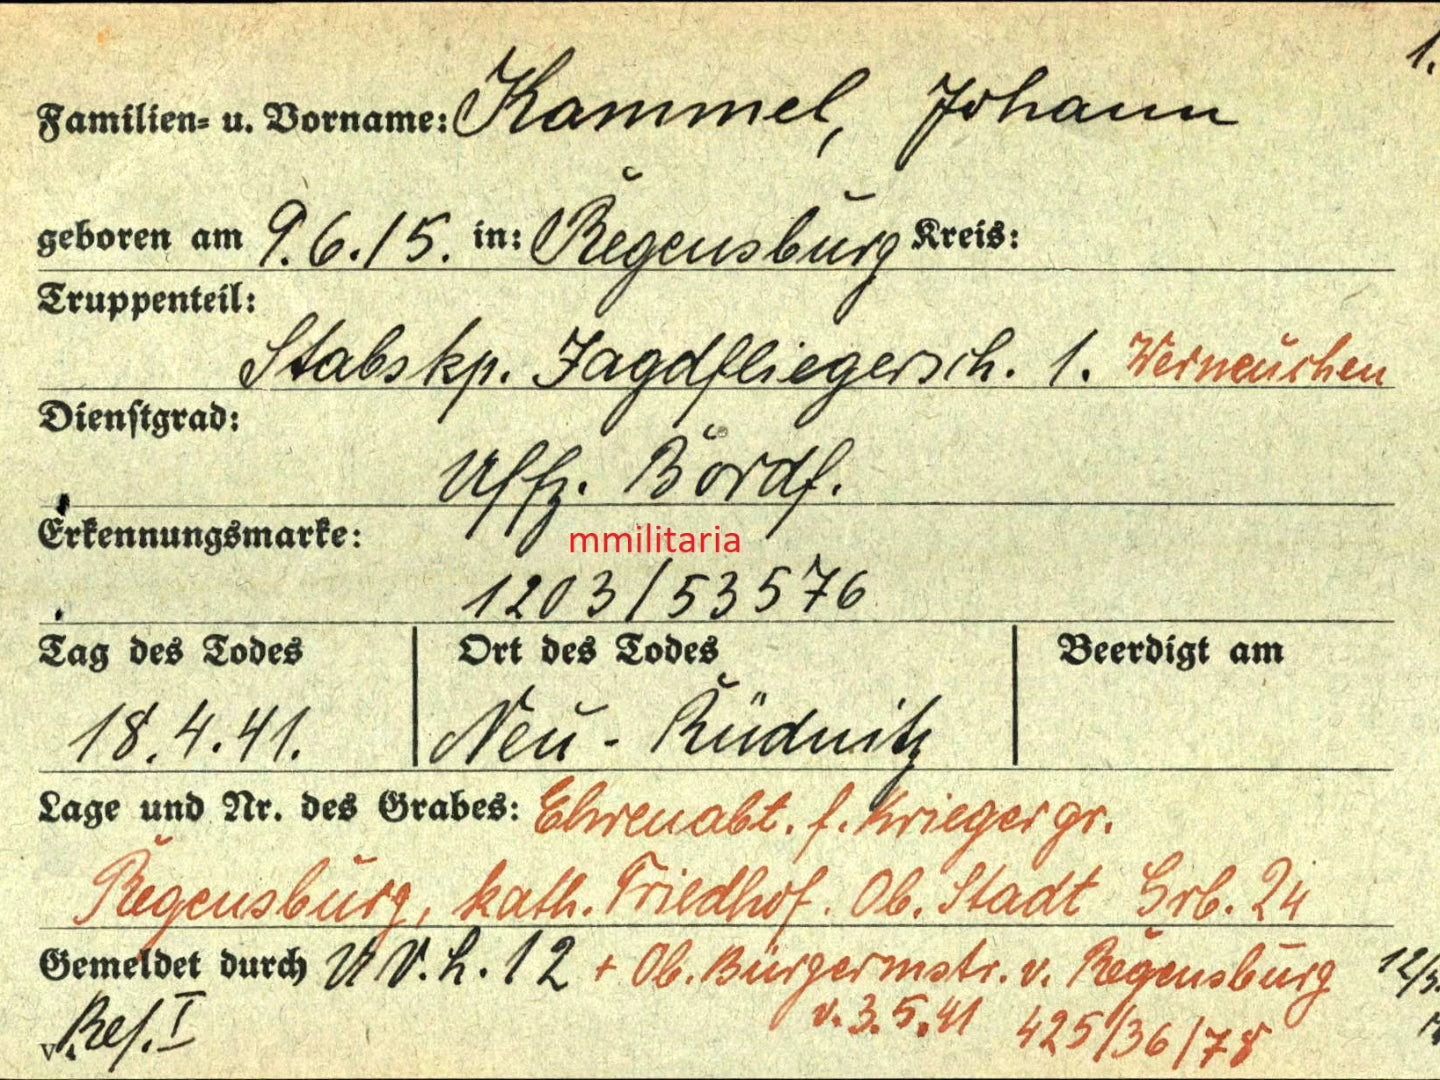 1.
Familien- u. Vorname: Kammel, Johann
geboren am 9.6.15. in: Regensburg Kreis:
Truppenteil:
Stabskp. Jagdfliegersch. 1. Werneuchen
Dienstgrad:
Uffz. Bordf.
Erkennungsmarke:
mmilitaria
1203/53576
Tag des Todes Ort des Todes Beerdigt am
18.4.41. Neu-Rüdnitz
Lage und Nr. des Grabes: Ehrenabt. f. Kriegergr.
Regensburg, kath. Friedhof. Ob. Stadt Grb. 24
Gemeldet durch W.V.L.12 + Ob. Bürgermstr. v. Regensburg
v. 3.5.41 425/36/78
v. Ref. I